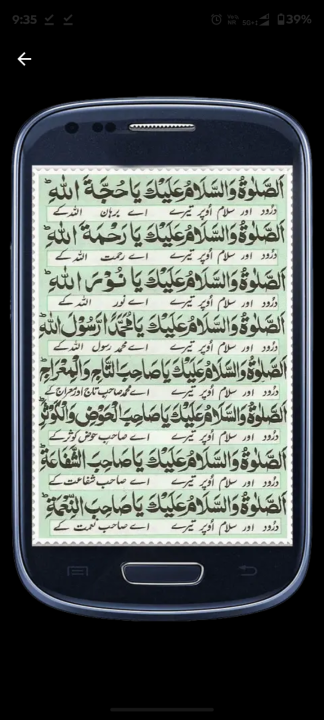 9:35
39%
اَلصَّلٰوةُ وَالسَّلَامُ عَلَيْكَ يَا حُجَّةَ اللهِ ط
درُود اور سلام اُوپر تیرے اے برہان اللہ کے
اَلصَّلٰوةُ وَالسَّلَامُ عَلَيْكَ يَا رَحْمَةَ اللهِ ط
درُود اور سلام اُوپر تیرے اے رحمت اللہ کے
اَلصَّلٰوةُ وَالسَّلَامُ عَلَيْكَ يَا نُوْرَ اللهِ ط
درُود اور سلام اُوپر تیرے اے نور اللہ کے
اَلصَّلٰوةُ وَالسَّلَامُ عَلَيْكَ يَا مُحَمَّدًا رَّسُوْلَ اللهِ
درُود اور سلام اُوپر تیرے اے محمد رسول اللہ کے
اَلصَّلٰوةُ وَالسَّلَامُ عَلَيْكَ يَا صَاحِبَ التَّاجِ وَالْمِعْرَاجِ ط
درُود اور سلام اُوپر تیرے اے محمد صاحب تاج اور معراج کے
اَلصَّلٰوةُ وَالسَّلَامُ عَلَيْكَ يَا صَاحِبَ الْحَوْضِ وَالْكَوْثَرِ ط
درُود اور سلام اُوپر تیرے اے صاحب حوض کوثر کے
اَلصَّلٰوةُ وَالسَّلَامُ عَلَيْكَ يَا صَاحِبَ الشَّفَاعَةِ ط
درُود اور سلام اُوپر تیرے اے صاحب شفاعت کے
اَلصَّلٰوةُ وَالسَّلَامُ عَلَيْكَ يَا صَاحِبَ النِّعْمَةِ ط
درُود اور سلام اُوپر تیرے اے صاحب نعمت کے